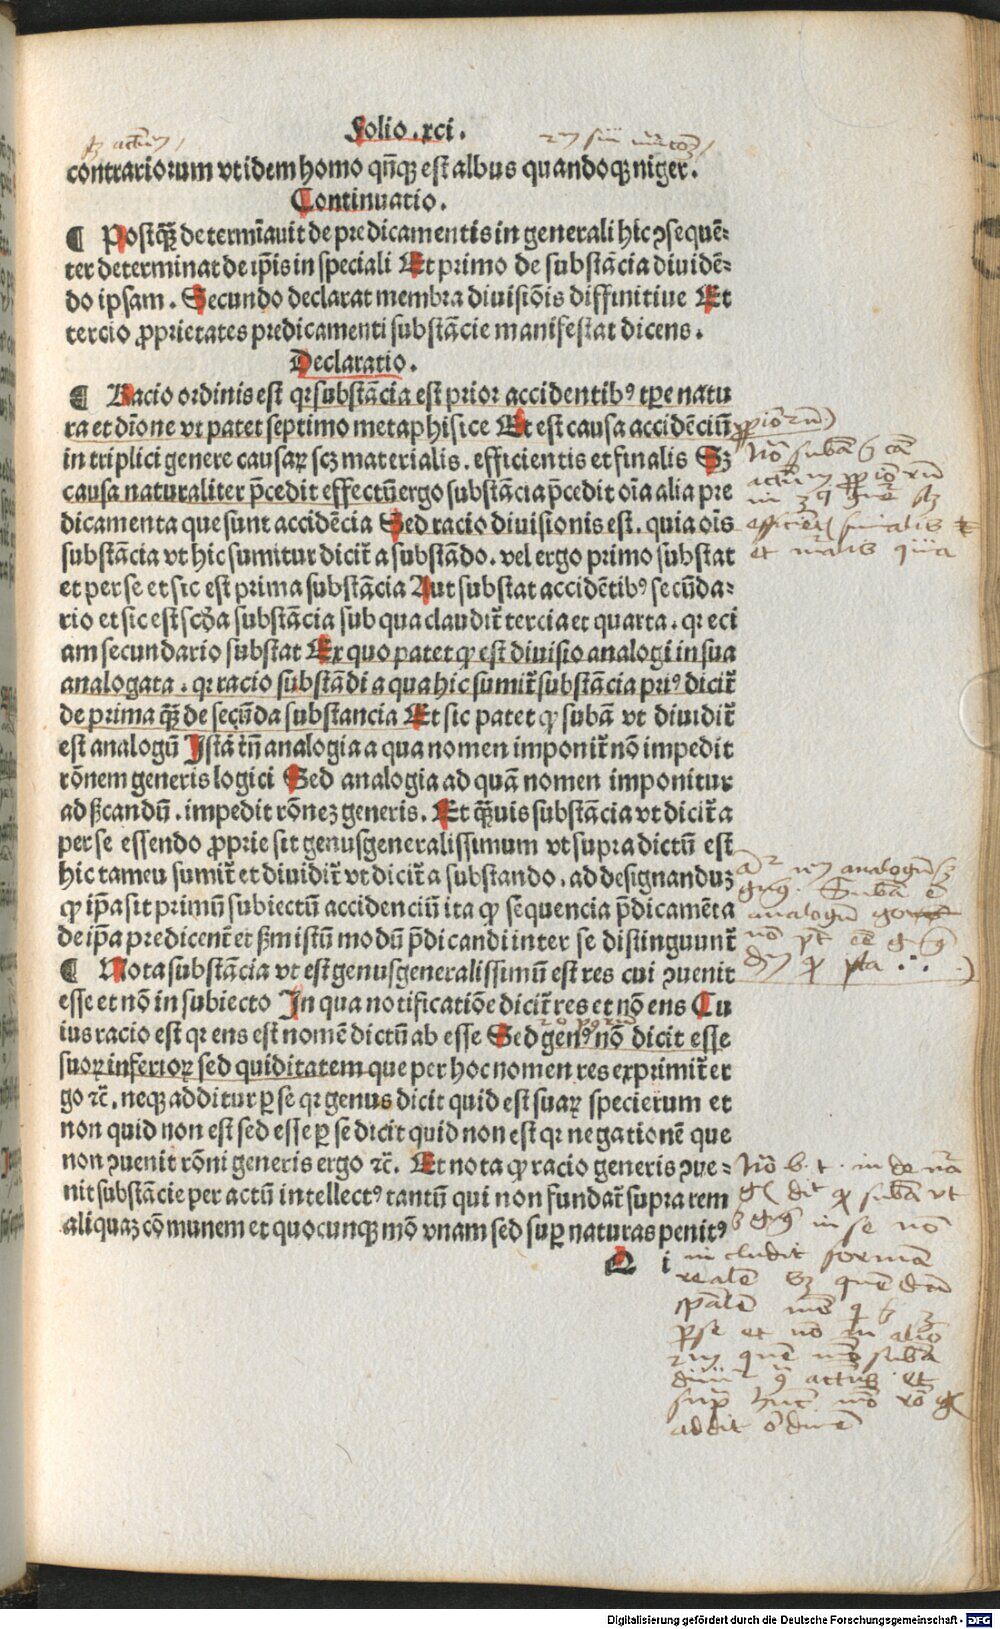 Folio.xci.
contrariorum vt idem homo qn̄q̄ȝ est albus quandoqȝ niger.
Continuatio.
¶ Postq̄ȝ determīauit de predicamentis in generali hic ꝯsequē⸗
ter determinat de ip̄is in speciali Et primo de substācia diuidē⸗
do ipsam. Secundo declarat membra diuisiōis diffinitiue Et
tercio ꝓprietates predicamenti substācie manifestat dicens.
Declaratio.
¶ Racio ordinis est qꝛ substācia est prior accidentibꝰ tꝑe natu
ra et dīone vt patet septimo metaphisice Et est causa accidēciū
in triplici genere causaꝝ scȝ materialis. efficientis et finalis Sȝ
causa naturaliter p̄cedit effectū ergo substācia p̄cedit oīa alia pre
dicamenta que sunt accidēcia Sed racio diuisionis est. quia oīs
substācia vt hic sumitur dicit̄ a substādo. vel ergo primo substat
et per se et sic est prima substācia Aut substat accidētibꝰ secūda⸗
rio et sic est scḏa substācia sub qua claudit̄ tercia et quarta. qꝛ eci
am secundario substat Ex quo patet ꝙ est diuisio analogi in sua
analogata. qꝛ racio substādi a qua hic sumit̄ substācia priꝰ dicit̄
de prima q̄ȝ de secūda substancia Et sic patet ꝙ subā vt diuidit̄
est analogū Ista tn̄ analogia a qua nomen imponit̄ nō impedit
rōnem generis logici Sed analogia ad quā nomen imponitur
ad ẜcandū. impedit rōneȝ generis. Et q̄ȝuis substācia vt dicit̄ a
per se essendo ꝓprie sit genusgeneralissimum vt supra dictū est
hic tameu sumit̄ et diuidit̄ vt dicit̄ a substando. ad designanduȝ
ꝙ ip̄a sit primū subiectū accidenciū ita ꝙ sequencia p̄dicamēta
de ip̄a predicent̄ et ẜm istū modū p̄dicandi inter se distinguunt̄
¶ Nota substācia vt est genusgeneralissimū est res cui ꝯuenit
esse et nō in subiecto In qua notificatiōe dicit̄ res et nō ens Cu
ius racio est qꝛ ens est nomē dictū ab esse Sed genꝰ nō dicit esse
suoꝝ inferioꝝ sed quiditatem que per hoc nomen res exprimit̄ er
go ⁊c̄. neqȝ additur ꝑ se qꝛ genus dicit quid est suaꝝ specierum et
non quid non est sed esse ꝑ se dicit quid non est qꝛ negationē que
non ꝯuenit rōni generis ergo ⁊c̄. Et nota ꝙ racio generis ꝯue⸗
nit substācie per actū intellectꝰ tantū qui non fundat̄ supra rem
aliquaȝ cōmunem et quocunqȝ mō vnam sed suꝑ naturas penitꝰ
Q i
nō subā
efficien finalis
et
analogū
subā ē
analogū
nō
nō
dit ꝙ subā vt
in se nō
includit formā
realē quēdā
spālē
ꝑse et nō in alio
subā
actus et
addit
Digitalisierung gefördert durch die Deutsche Forschungsgemeinschaft - DFG